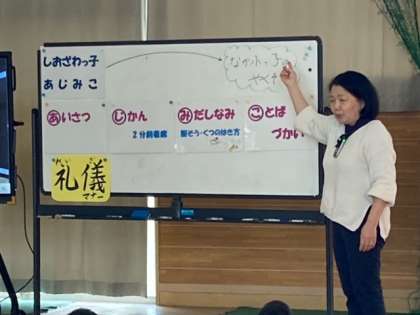 しおざわっ子
あじみこ
なかよっ子の
やくそ
あいさつ
じかん
みだしなみ
ことば
づかい
2分前着席
服そう・くつのはき方
れい ぎ
礼儀
マナー